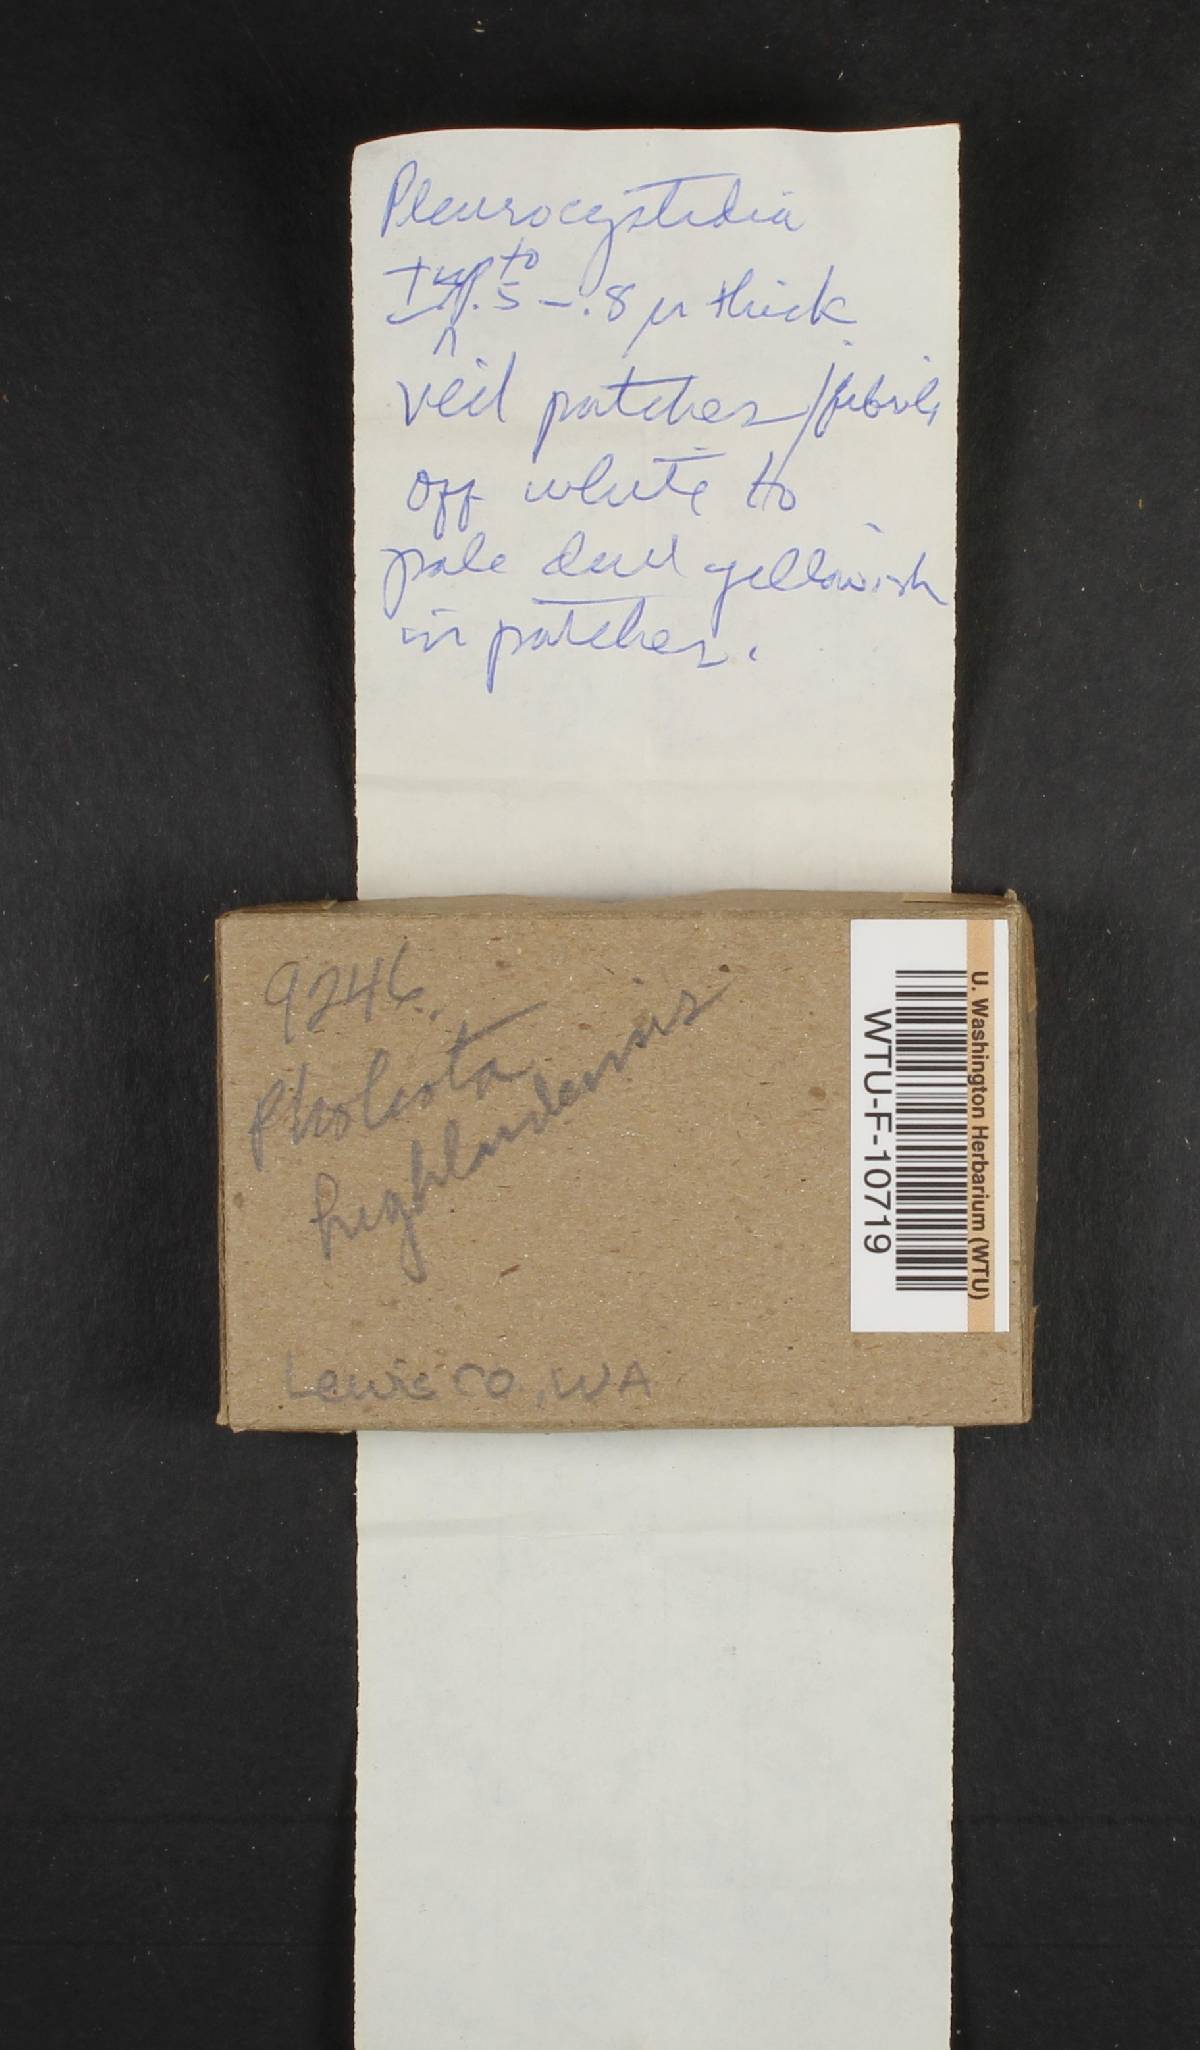 Pleurocystidia
± up to .5 - .8 µ thick.
veil patches/fibrils
off white to
pale dull yellowish
in patches.
9246.
Pholiota
highlandensis
Lewis Co., WA
U. Washington Herbarium (WTU)
WTU-F-10719